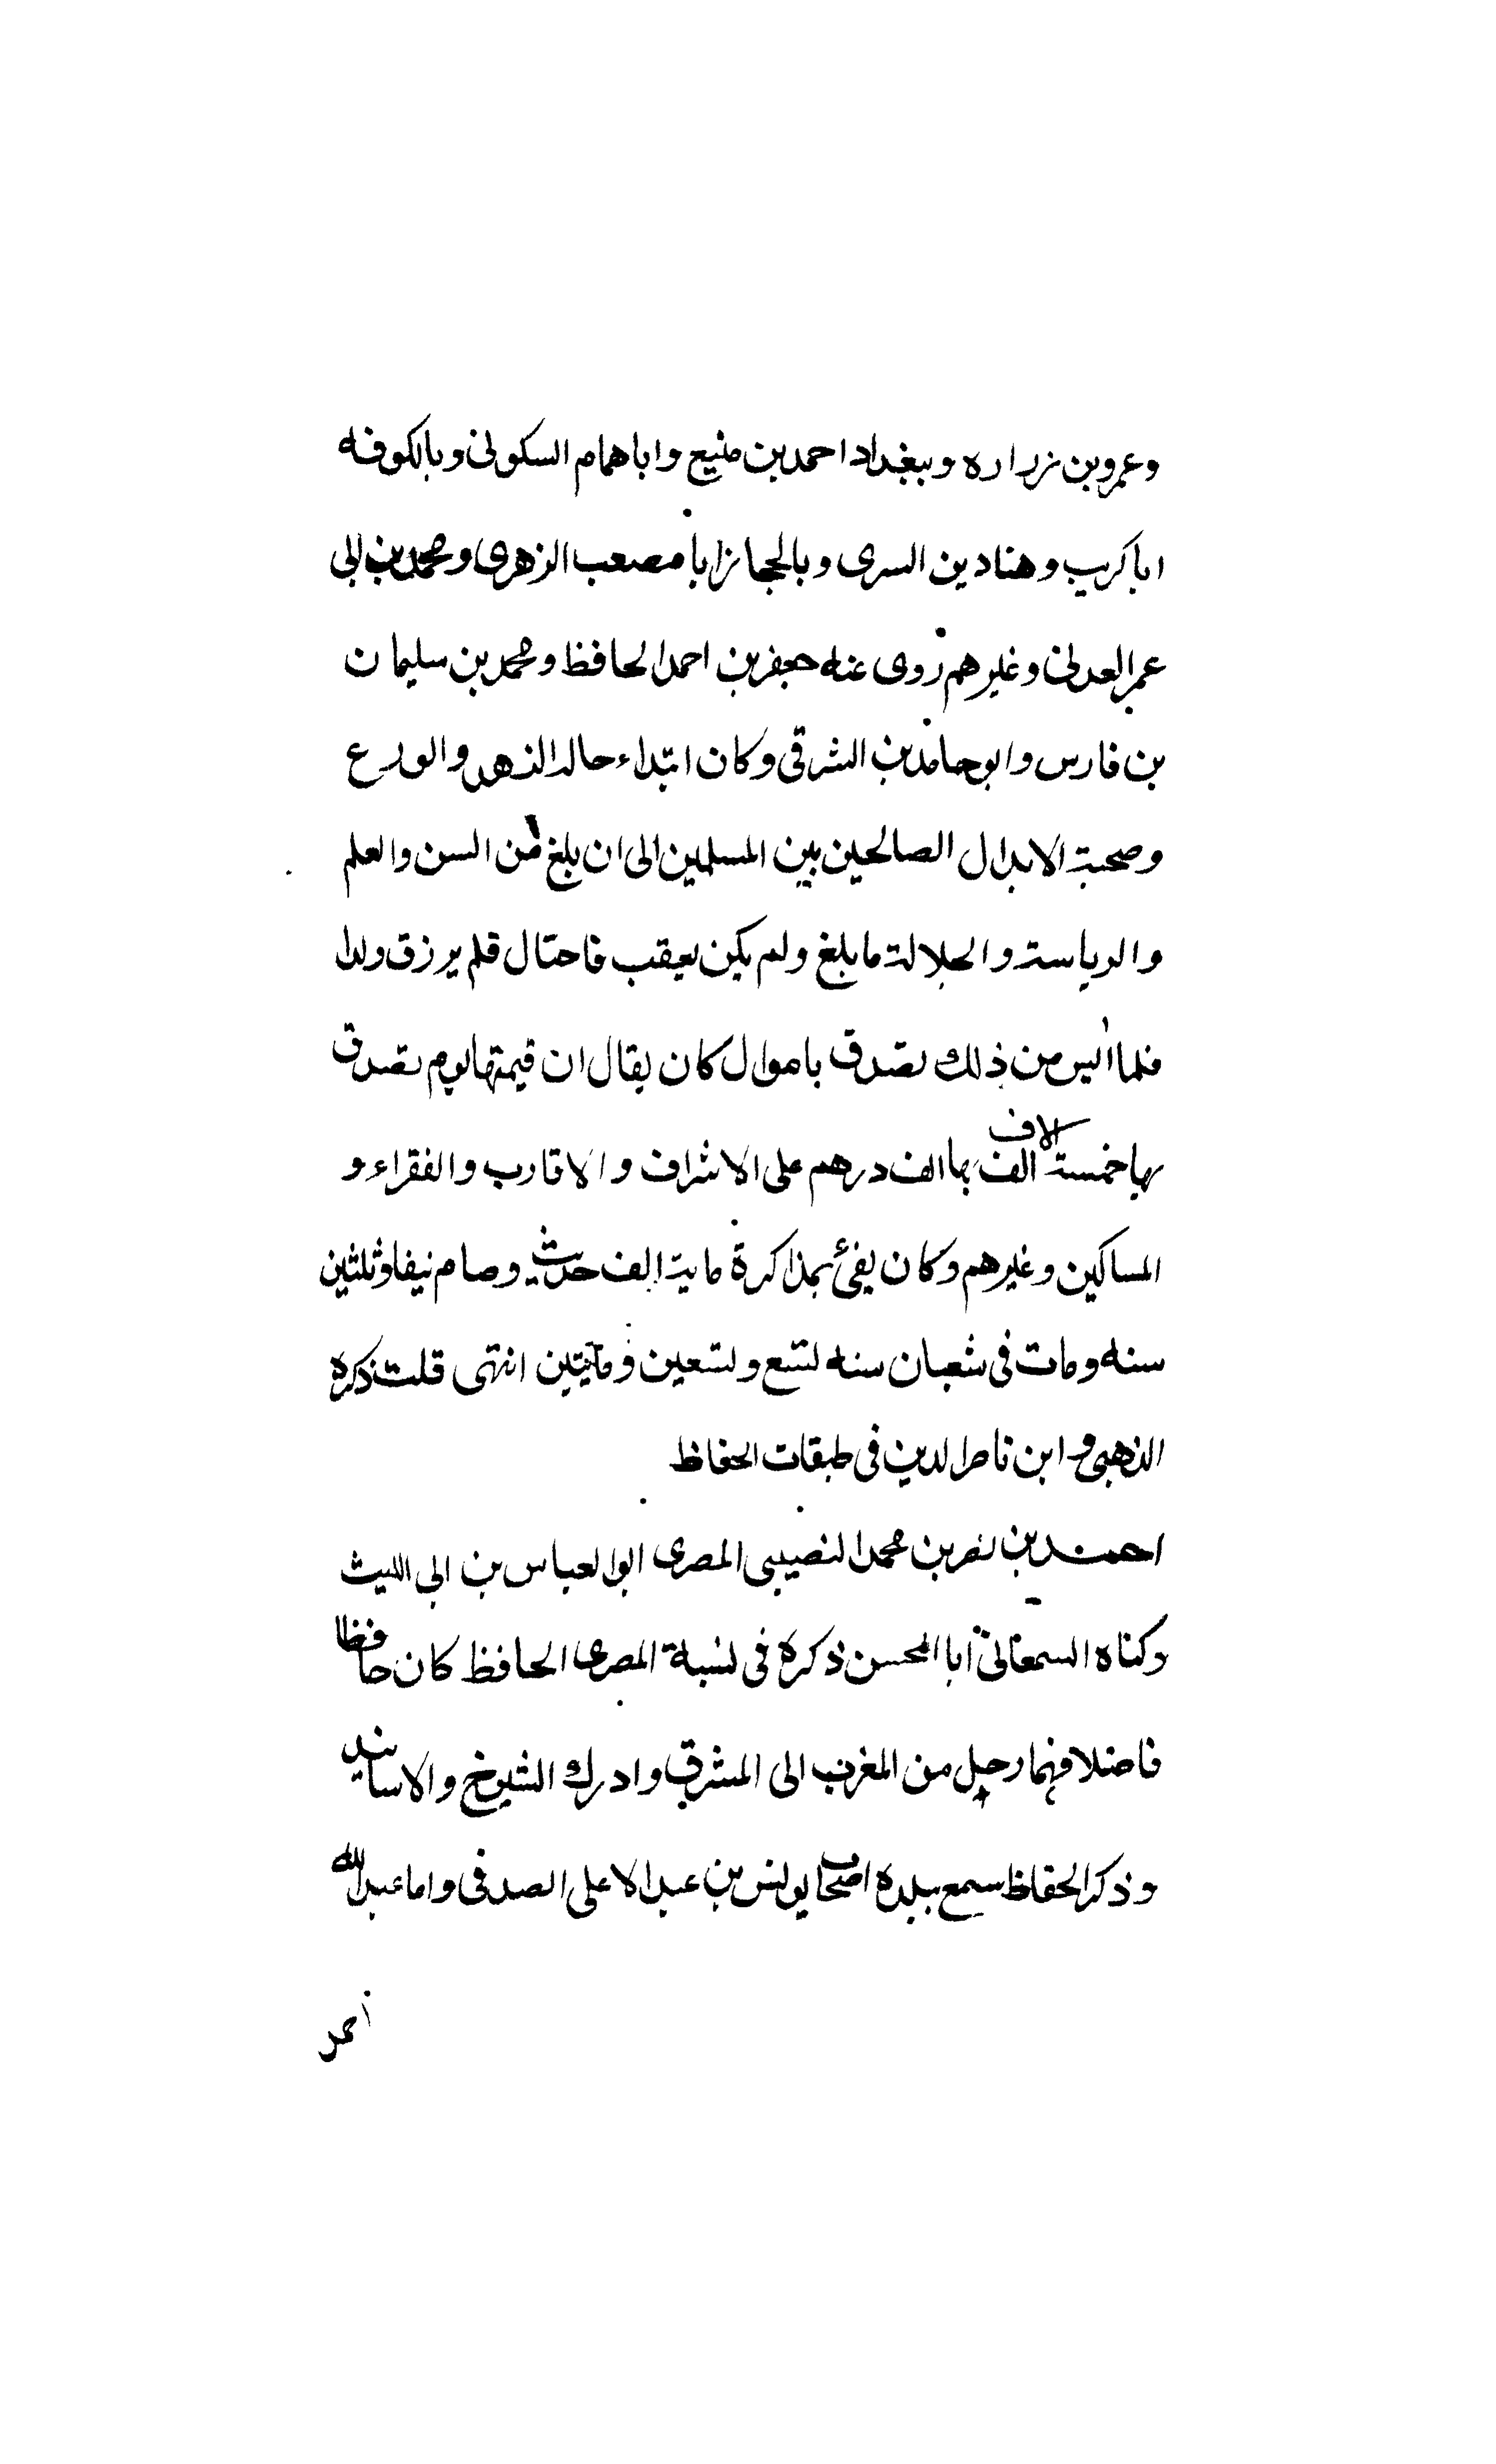 وعمرو بن زراره وببغداد احمد بن منيع وابا همام السكونى وبالكوفه
ابا كريب وهناد بن السرى وبالحجاز ابا مصعب الزهرى ومحمد بن ابى
عمر العدنى وغيرهم روى عنه جعفر بن احمد الحافظ ومحمد بن سليمان
بن فارس وابو حامد بن الشرقى وكان ابتداء حاله الزهد والورع
وصحبة الابدال الصالحين بين المسلمين الى ان بلغ من السن والعلم
والرياسة والجلالة ما بلغ ولم يكن يعقب فاحتال فلم يرزق ولدا
فلما ايس من ذلك تصدق باموال كان يقال ان قيمتها يوم تصدق
بها خمسة آلاف الف بها الف درهم على الاشراف والاقارب والفقراء و
المساكين وغيرهم وكان يفئ بمذاكرة ماية الف حديث وصام نيفا وثلثين
سنه ومات فى شعبان سنه تسع وتسعين ومأيتين انتهى قلت ذكره
الذهبى و ابن ناصر الدين فى طبقات الحفاظ
احمد بن نصر بن محمد النصيبى المصرى ابو العباس بن ابى الليث
وكناه السمعانى ابا الحسن ذكره فى نسبة المصرى الحافظ كان حافظا
فاضلا فهما رحل من المغرب الى المشرق وادرك الشيوخ والاسانيد
وذكر الحفاظ سمع ببلده اصحاب يونس بن عبد الاعلى الصدفى واما عبد الله
احمد